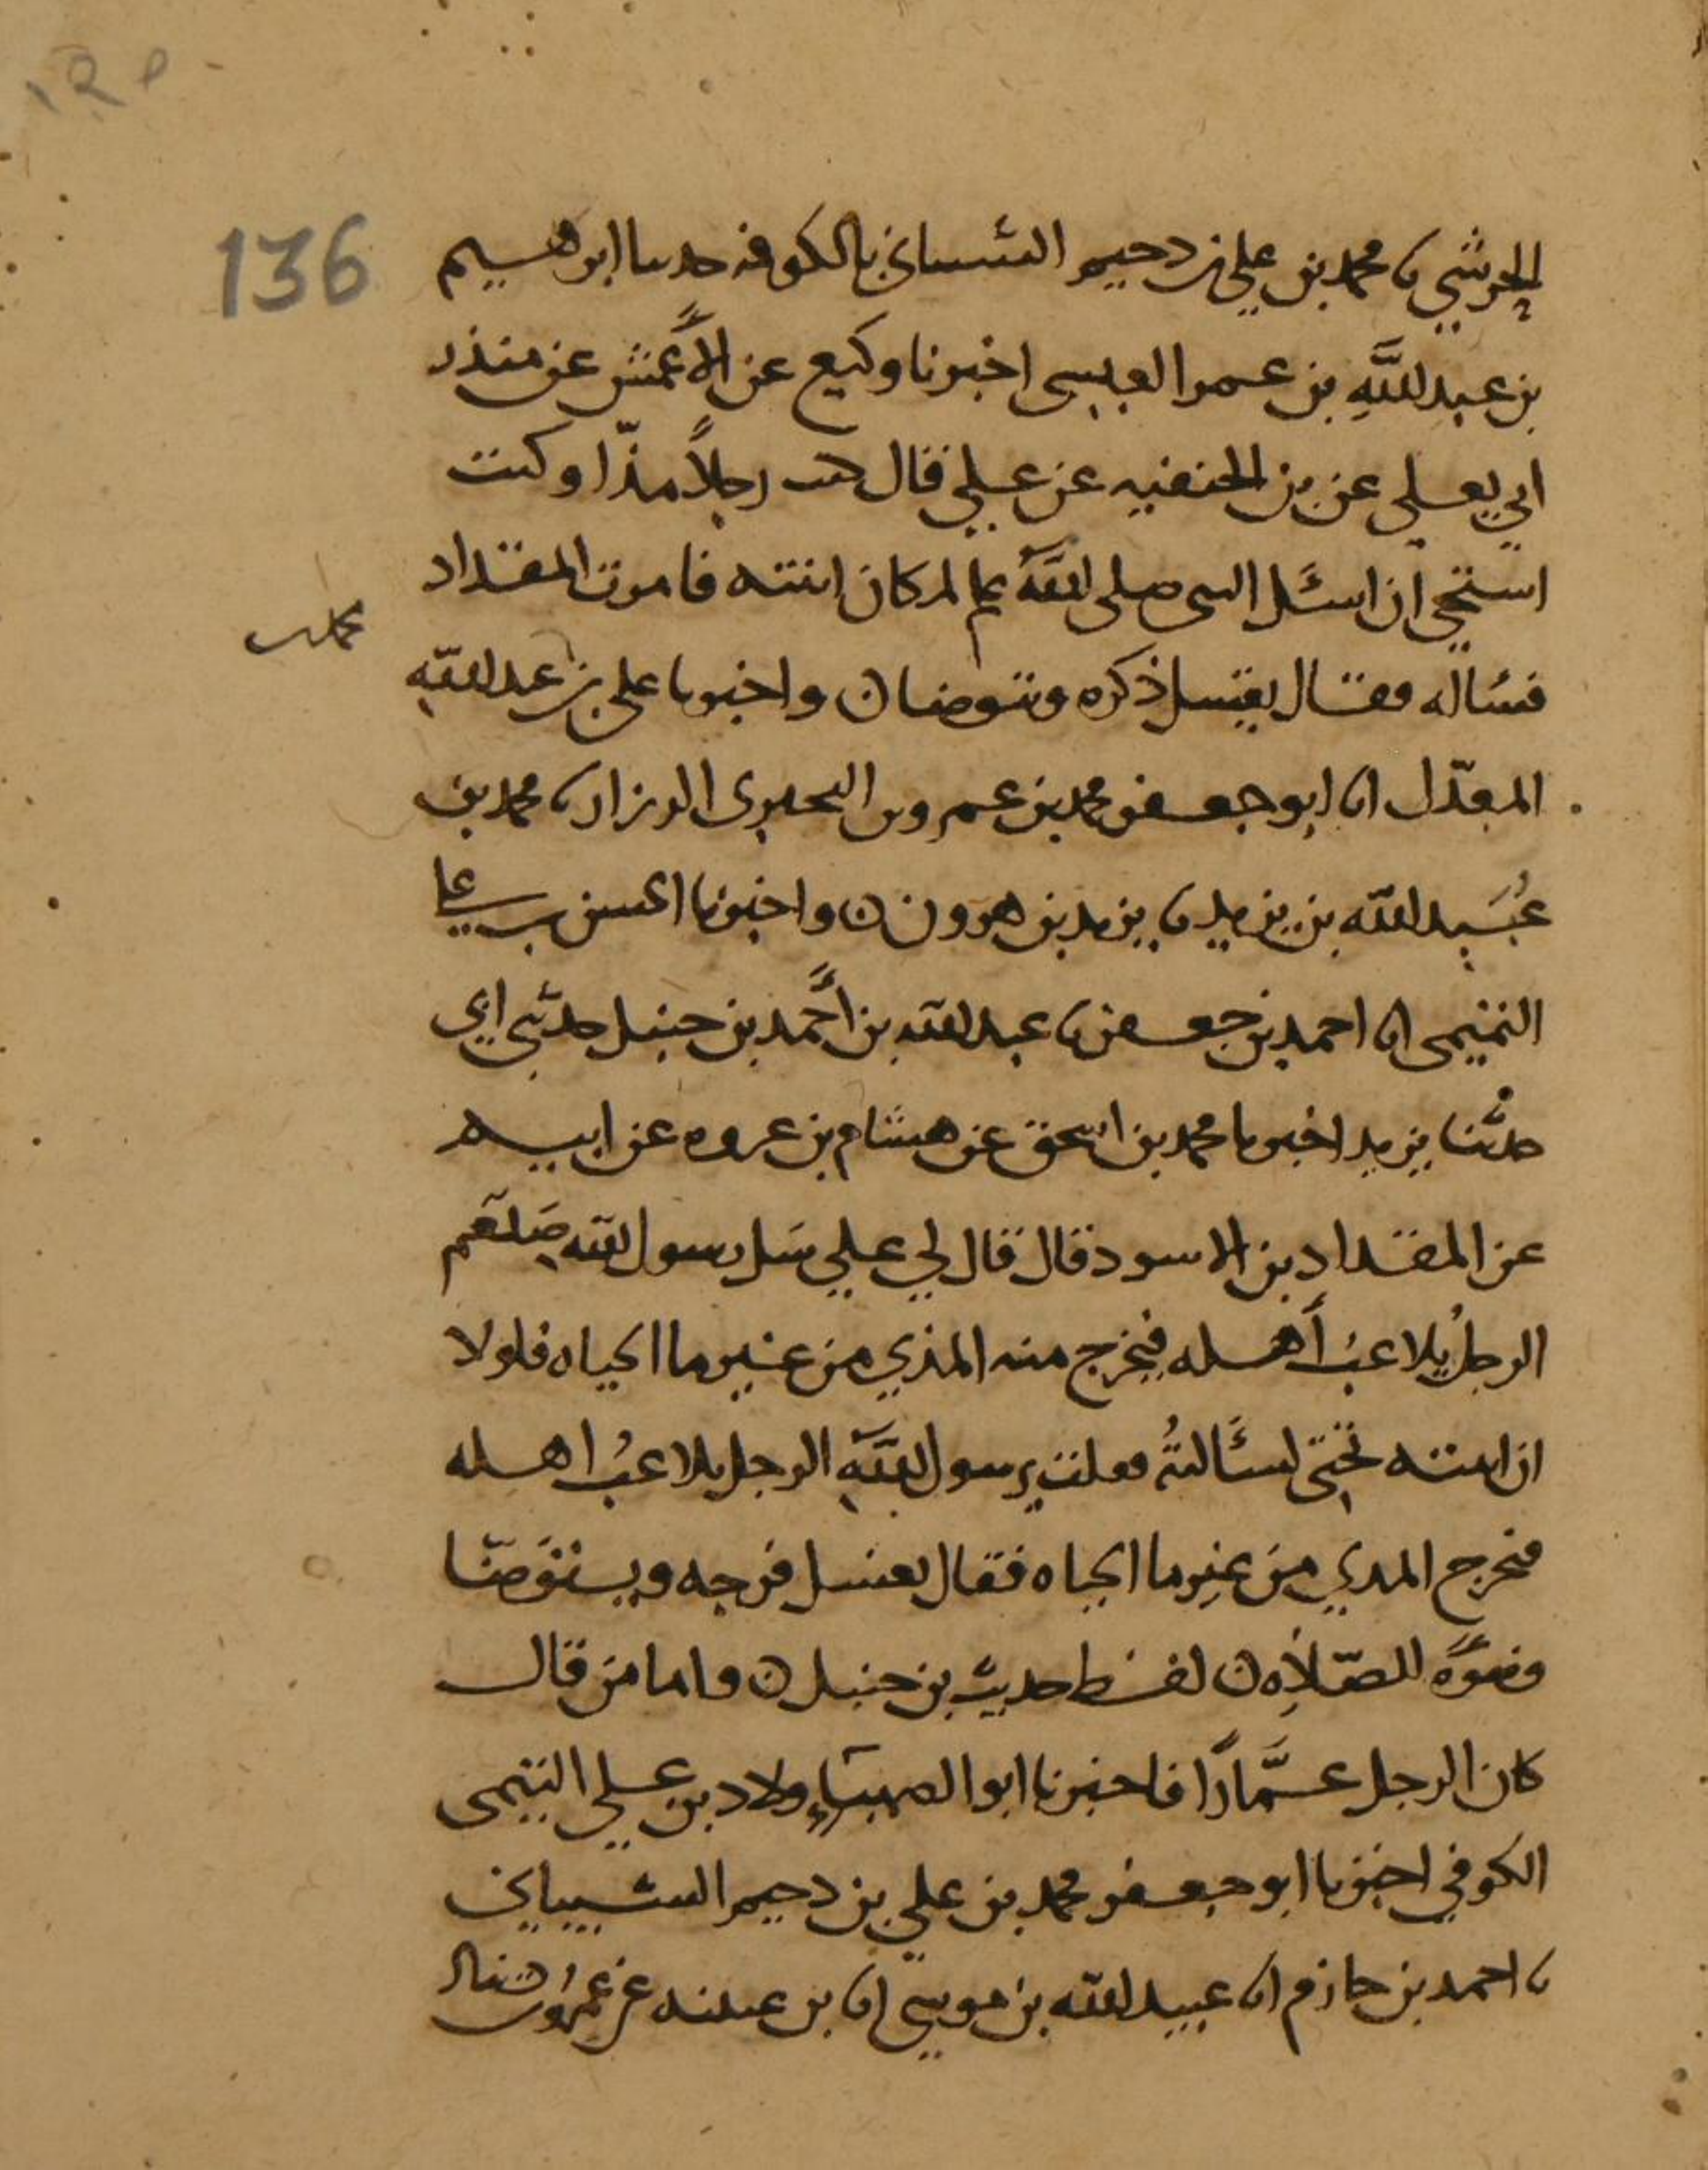 136
الحرشي نا محمد بن علي بن دحيم الشيباني بالكوفه حدثنا ابرهيم
بن عبد الله بن عمر العبسي اخبرنا وكيع عن الأعمش عن منذر
ابي يعلى عن بن الحنفيه عن علي قال كنت رجلاً مذّا وكنت
استحي ان اسئل النبي صلى الله عم لمكان ابنته فامرت المقداد
فسئاله فقال يغسل ذكره ويتوضا ن واخبرنا علي بن عبد الله
المعدّل انا ابو جعفر محمد بن عمرو بن البحيري الرزاز نا محمد بن
عُبَيد الله بن يزيد نا يزيد بن هرون ن واخبرنا الحسن بن علي
التميمي انا احمد بن جعفر نا عبد الله بن أَحمد بن حنبل حدثني ابي
حدثنا يزيد اخبرنا محمد بن اسحق عن هشام بن عروه عن ابيه
عن المقداد بن الاسود قال قال لي علي سَل رسول الله صَلعم
الرجلُ يلاعبُ أَهله فيخرج منه المذي من غير ما الحياه فلولا
ان ابنته تحتي لسَألتهُ فقلت يرسول اللَّهِ الرجل يلاعبُ اهله
فيخرج المذي من غير ما الحياه فقال يغسل فرجه ويتوَضّا
وضوَه للصّلاَهِ ن لفظ حديث بن حنبل ن واما من قال
كان الرجل عَمَّارًا فاخبرنا ابو الصهباءِ ولاد بن علي التيمي
الكوفي اخبرنا ابو جعفر محمد بن علي بن دحيم الشيباني
نا احمد بن حازم انا عبيد الله بن موسي انا بن عيينه عن عمرو قال